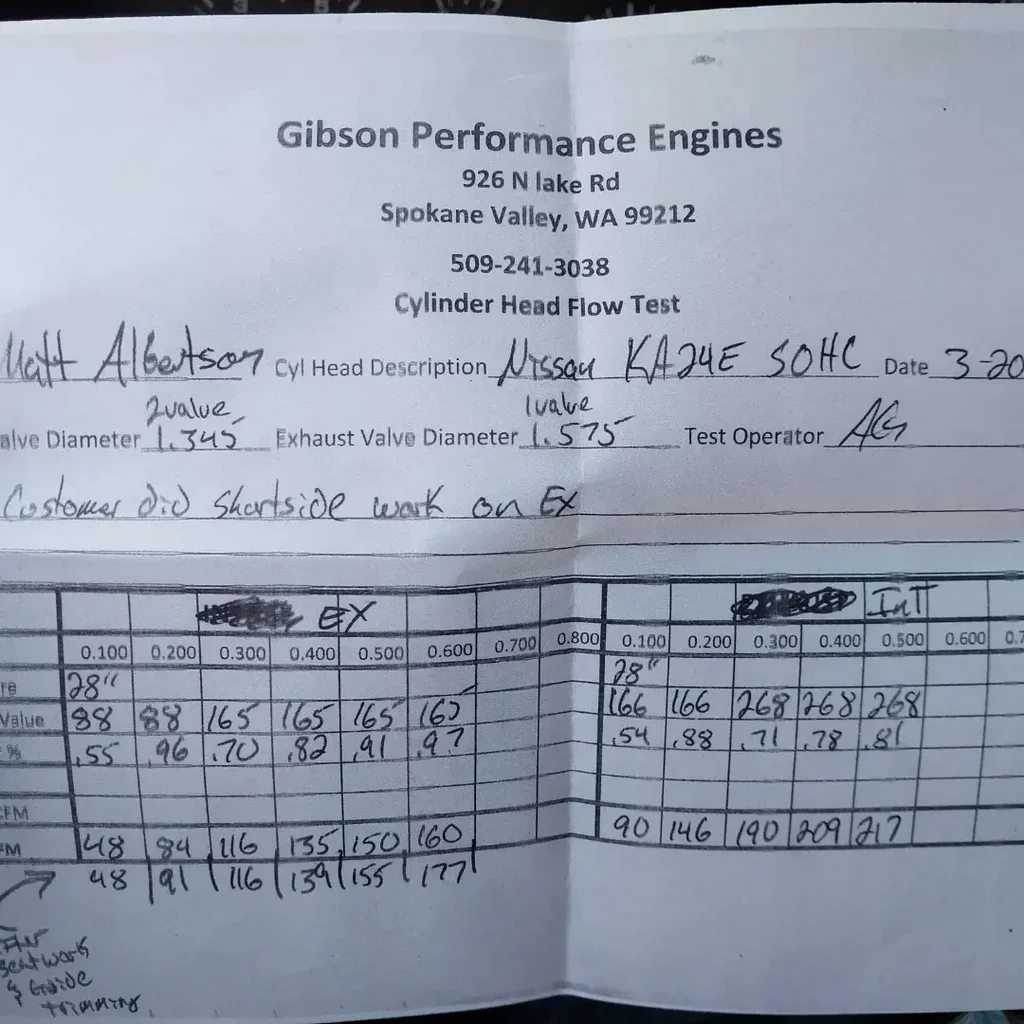 Gibson Performance Engines
926 N lake Rd
Spokane Valley, WA 99212
509-241-3038
Cylinder Head Flow Test
Matt Albertson Cyl Head Description Nissan KA24E SOHC Date 3-20
2valve 1valve
alve Diameter 1.345 Exhaust Valve Diameter 1.575 Test Operator AG
Customer did Shortside work on EX
EX InT
0.100 0.200 0.300 0.400 0.500 0.600 0.700 0.800 0.100 0.200 0.300 0.400 0.500 0.600 0.7
re 28" 28"
Value 88 88 165 165 165 165 166 166 268 268 268
% .55 .96 .70 .82 .91 .97 .54 .88 .71 .78 .81
CFM
FM 48 84 116 135 150 160 90 146 190 209 217
48 91 116 139 155 177
seatwork
& Guide
trimming